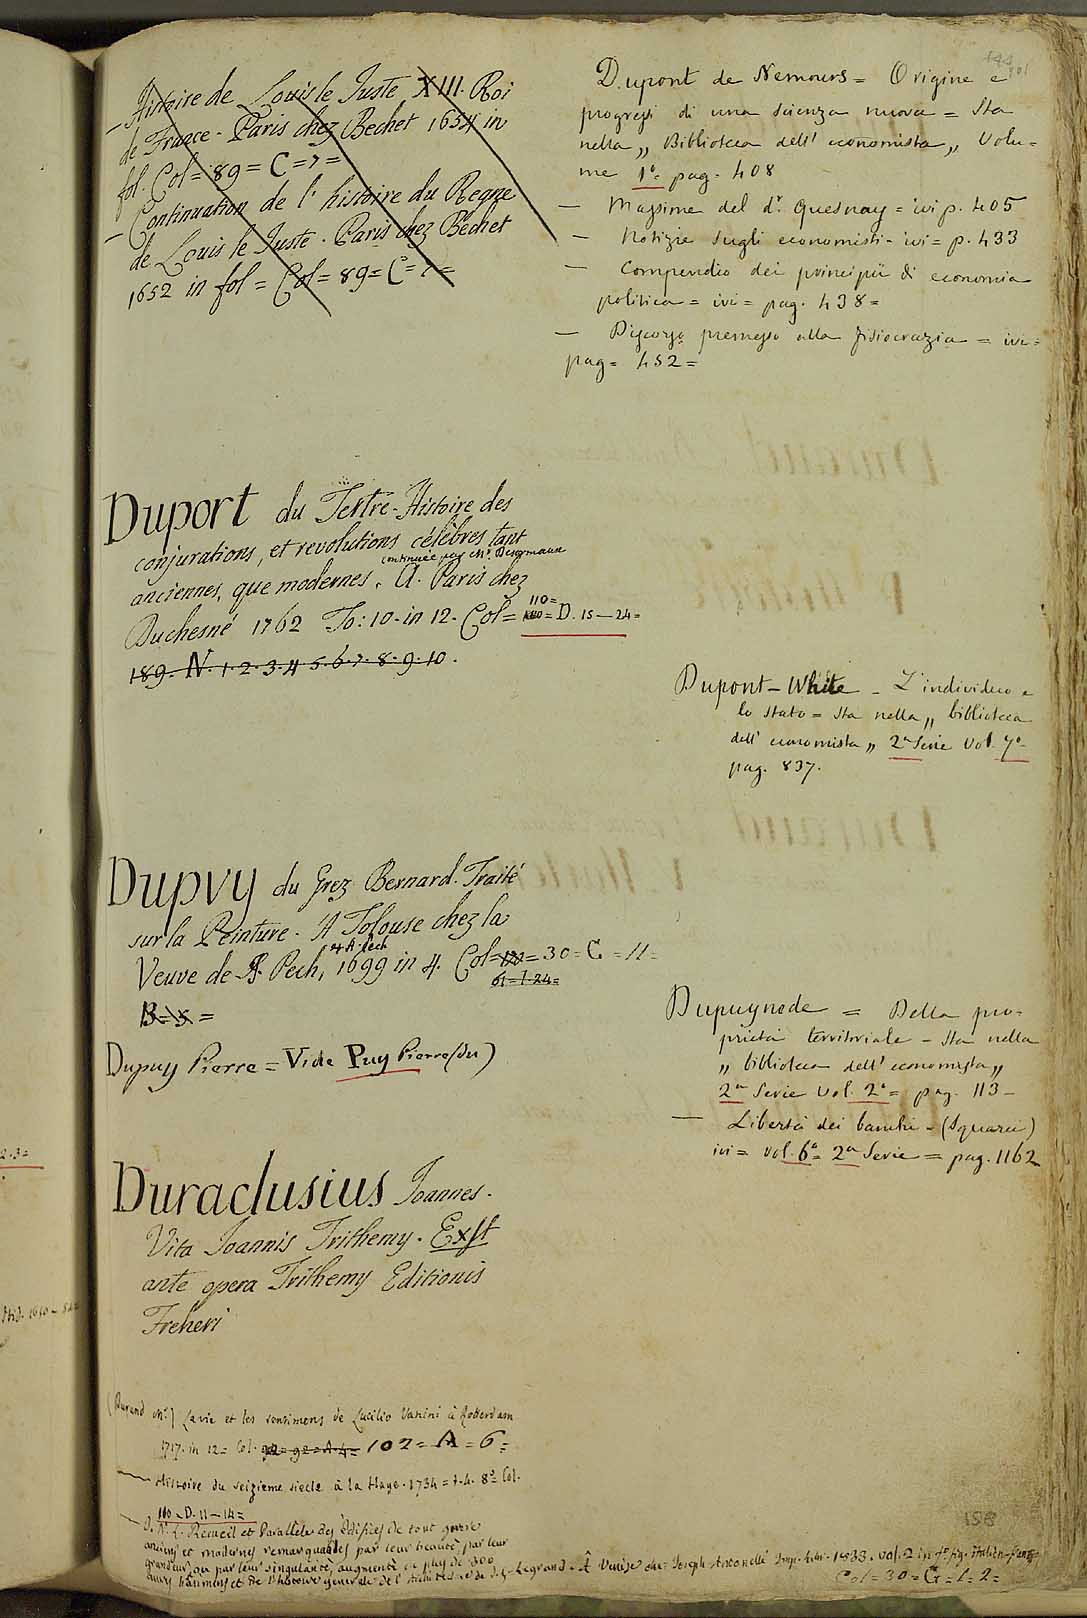 – Histoire de Louis le Juste XIII. Roi
de France - Paris chez Bechet 1654 in
fol. Col = 89 = C = 7 =
– Continuation de l' histoire du Regne
de Louis le Juste. Paris chez Bechet
1652 in fol = Col = 89 = C = 7 =
Duport du Tertre - Histoire des
conjurations, et revolutions célèbres tant
continuée par Mr. Desormaux
anciennes, que modernes. A. Paris chez
110 =
Duchesné 1762 To: 10. in 12. Col = D. 15 — 24 =
189. N. 1. 2. 3. 4. 5. 6. 7. 8. 9. 10.
Dupvy du Grez Bernard. Traité
sur la Peinture. A Tolouse chez la
Veuve de Pech, 1699 in 4. Col = = 30 = G = 11 =
61 = I. 24 =
B = 5 =
Dupuy Pierre = Vide Puy Pierre (du)
Duraclusius Joannes.
Vita Joannis Trithemy. Exst
ante opera Trithemy Editionis
Freheri
(Durand Mr.) La vie et les sentimens de Lucilio Vanini à Rotterdam
1717. in 12 = Col. 102 = A = 6 =
— Histoire du seizieme siecle à la Haye. 1734 = t. 4. 8° Col.
110 - D. 11 — 14 =
— J. N. L. Recueil et Parallèle des Edifices de tout genre
anciens et modernes remarquables par leur beauté, par leur
grandeur, ou par leur singularité, augmenté de plus de 300
autres batimens et de l'histoire generale de l'Architecture de J. G. Legrand. A Venise chez Joseph Antonelli Imp. Libr. 1833. vol. 2 in f° fig. Italien-franç
Col = 30 = G = 1 = 2 =
Dupont de Nemours = Origine e
progressi di una scienza nuova = Sta
nella „ Biblioteca dell' economista „ Volu-
me 1° = pag. 408
— Massime del dr. Quesnay = ivi p. 405
— Notizie sugli economisti - ivi = p. 433
— Compendio dei principii di economia
politica = ivi = pag. 438 =
— Discorso premesso alla fisiocrazia = ivi =
pag = 452 =
Dupont-White - L'individuo e
lo stato = sta nella „ biblioteca
dell' economista „ 2a Serie Vol. 7° -
pag. 837.
Dupuynode = Della pro-
prietà territoriale - sta nella
„ biblioteca dell' economista „
2a Serie vol. 2° = pag. 113 -
— Libertà dei banchi - (Squarci)
ivi = vol. 6° = 2a Serie = pag. 1162
158